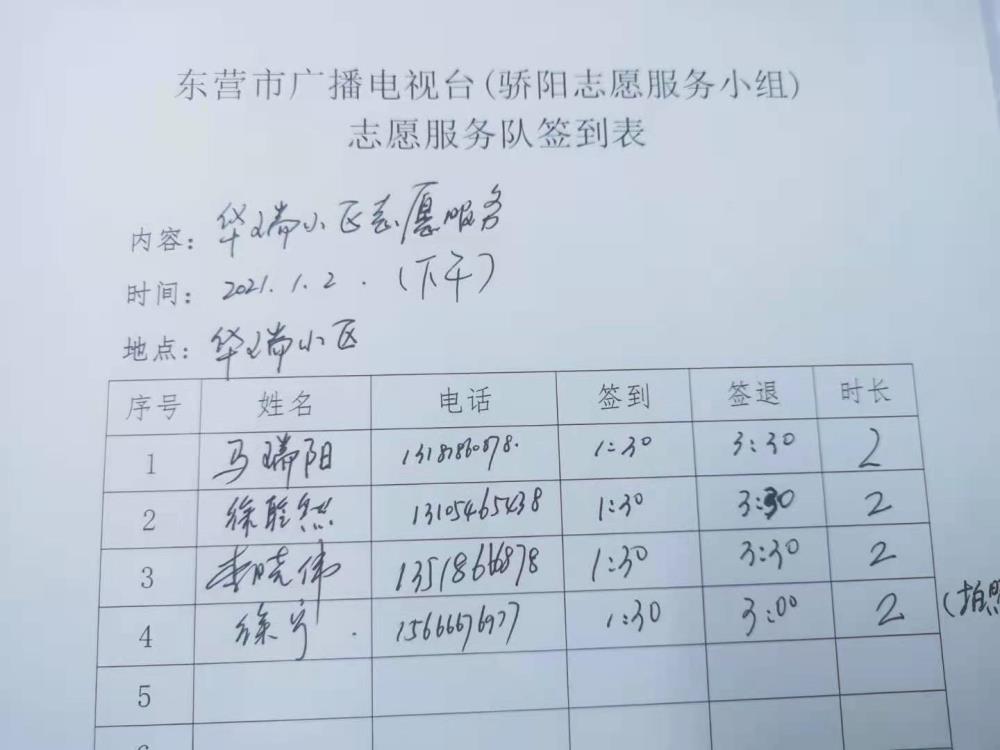 东营市广播电视台(骄阳志愿服务小组)
志愿服务队签到表
内容：华瑞小区志愿服务
时间：2021.1.2.(下午)
地点：华瑞小区
序号 姓名 电话 签到 签退 时长
1 马瑞阳 1:30 3:30 2
2 徐聆然 13105465438 1:30 3:30 2
3 李晓伟 13518666878 1:30 3:30 2
4 徐宁. 15666676977 1:30 3:00 2 (拍照
5